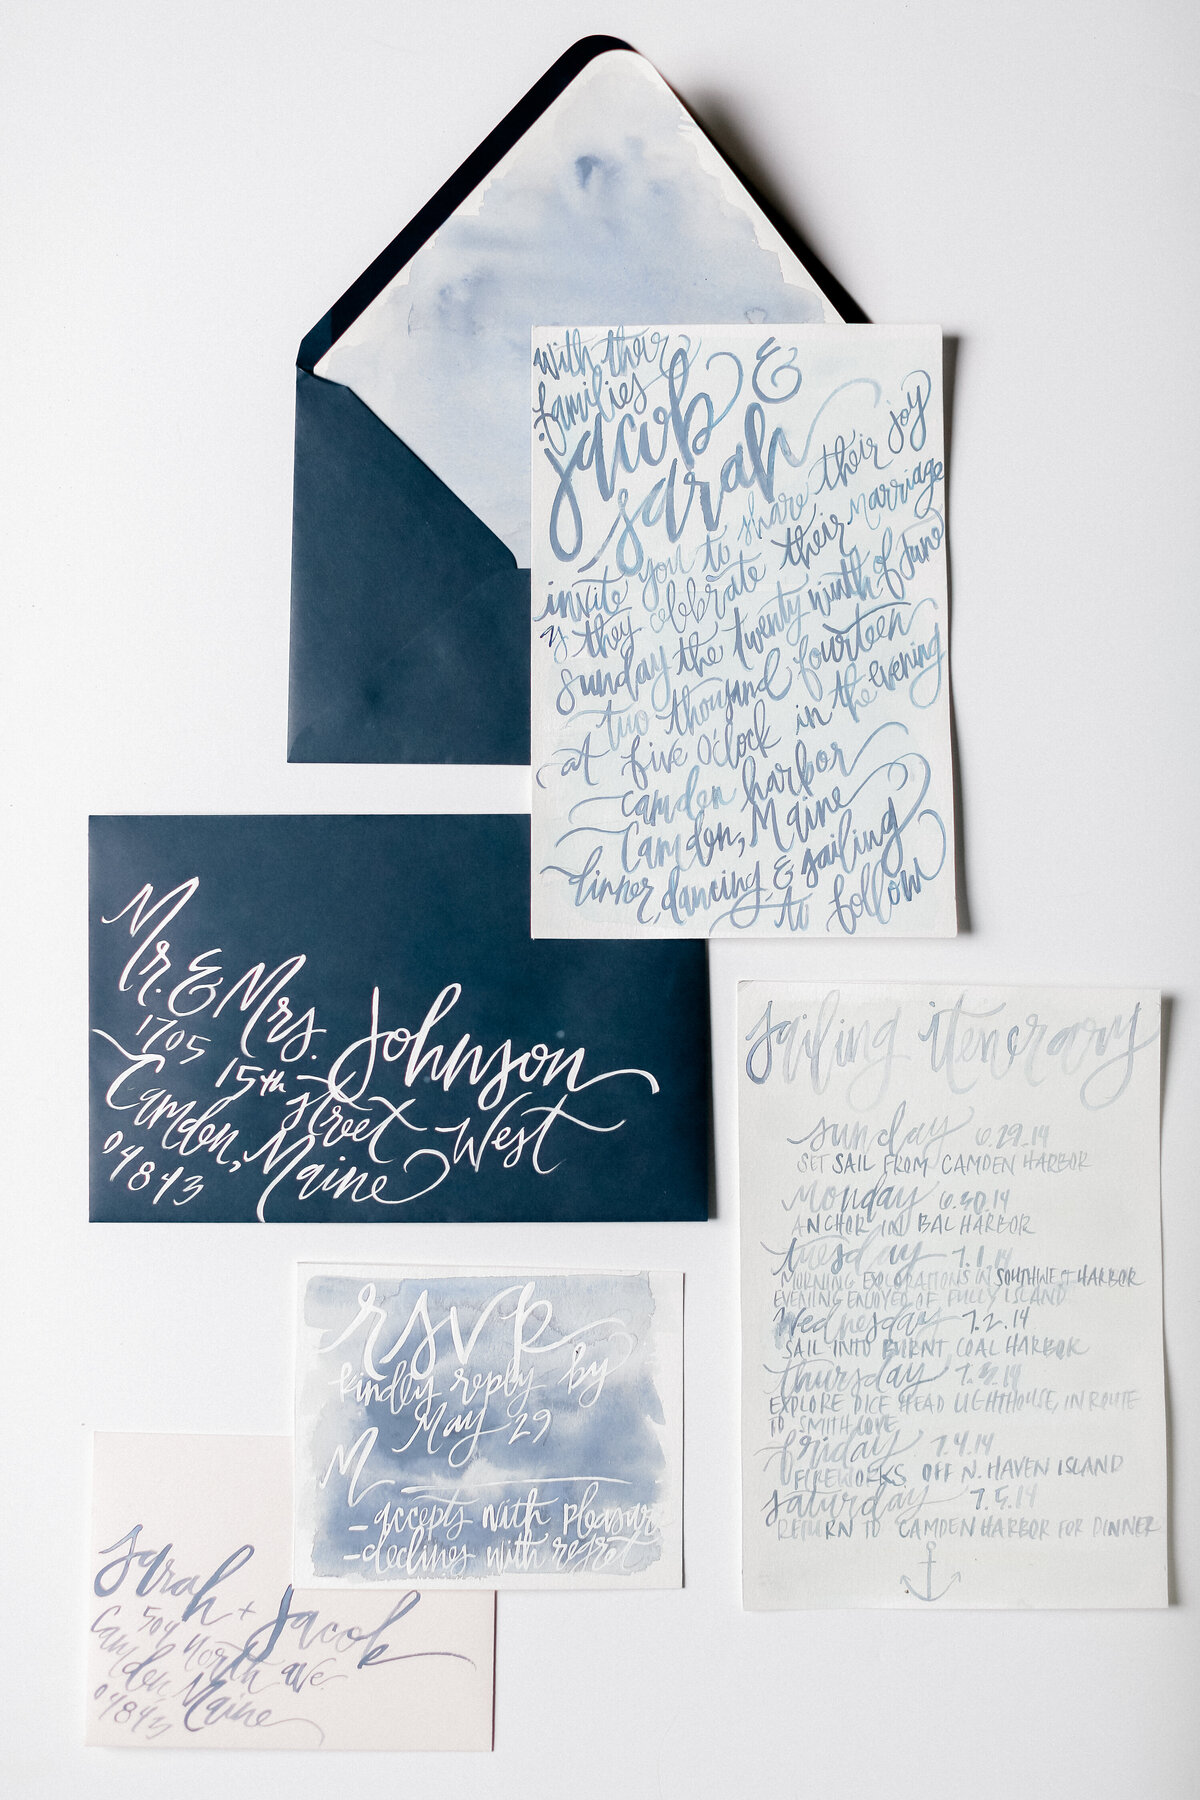 with their
families
jacob &
sarah
invite you to share their joy
as they celebrate their marriage
sunday the twenty ninth of June
two thousand fourteen
at five o'clock in the evening
camden harbor
Camden, Maine
dinner, dancing, & sailing
to follow
Mr. & Mrs. Johnson
1705 15th street West
Camden, Maine
04843
sailing itenerary
sunday 6.29.14
SET SAIL FROM CAMDEN HARBOR
monday 6.30.14
ANCHOR IN BAL HARBOR
tuesday 7.1.14
MORNING EXPLORATIONS IN SOUTHWEST HARBOR
EVENING ENJOYED OF ISLAND
Wednesday 7.2.14
SAIL INTO BURNT COAL HARBOR
thursday 7.3.14
EXPLORE DICE HEAD LIGHTHOUSE, IN ROUTE
TO SMITH COVE
friday 7.4.14
FIREWORKS OFF N. HAVEN ISLAND
saturday 7.5.14
RETURN TO CAMDEN HARBOR FOR DINNER
rsvp
kindly reply by
May 29
M
-accepts with pleasure
-declines with regret
Sarah + Jacob
504 North ave.
Camden, Maine
04843